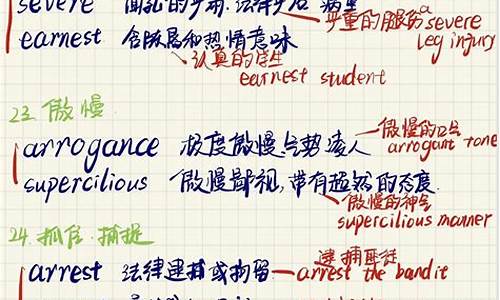 severe
严重的腿伤 a severe
leg injury
earnest 含殷勤和热情意味
认真的学生
earnest student
23. 傲慢
arrogance 极度傲慢,气势凌人
傲慢的口气
arrogant tone
supercilious 傲慢鄙视,带有超然的态度
傲慢的神气
supercilious manner
24. 抓住.捕捉
arrest 法律逮捕或拘留
逮捕匪徒
arrest the bandit